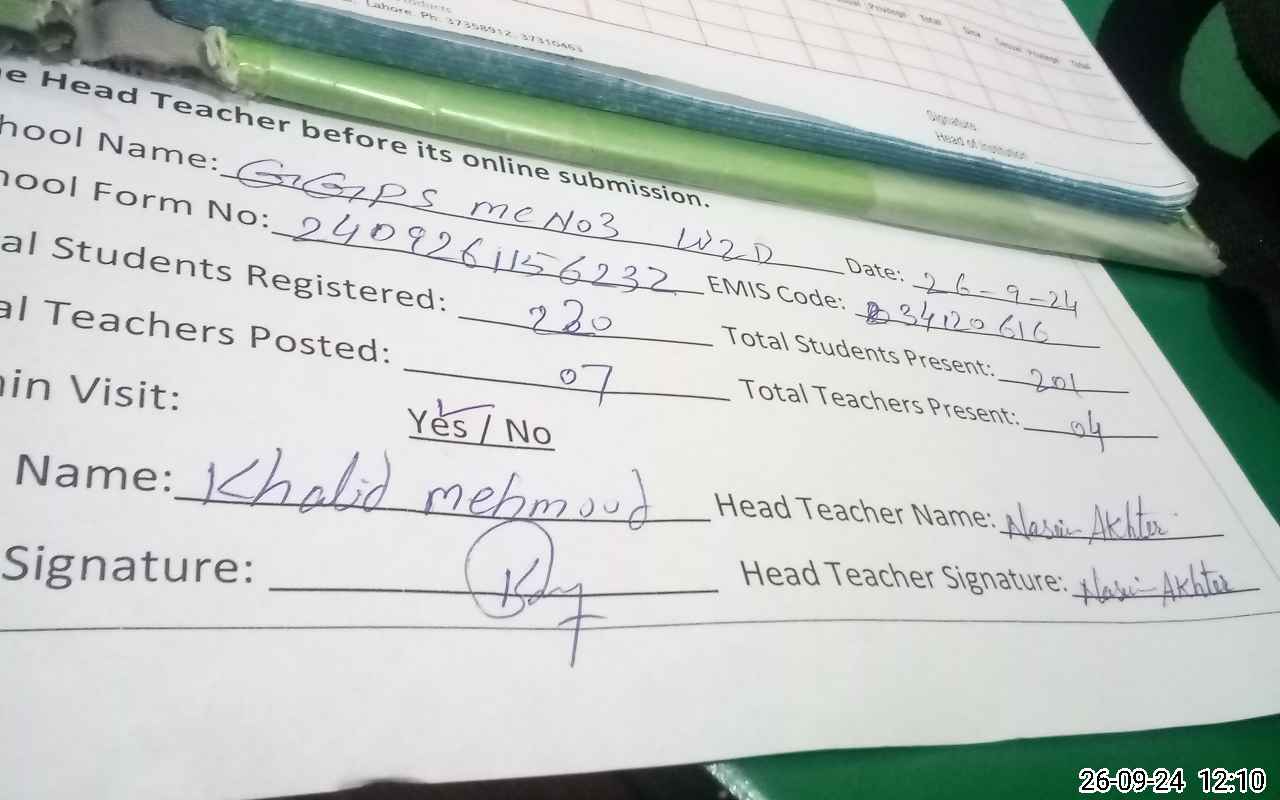 Lahore. Ph. 37358912, 37310463
Privilege Total
Casual Privilege Total
Signature
Head of Institution
e Head Teacher before its online submission.
hool Name: GGPS MC NO3 WZD Date: 26-9-24
hool Form No: 2409261156232 EMIS Code: 34120616
al Students Registered: 230 Total Students Present: 201
al Teachers Posted: 07 Total Teachers Present: 04
in Visit: Yes / No
Name: Khalid mehmood Head Teacher Name: Nasim Akhter
Signature: Head Teacher Signature: Nasim Akhter
26-09-24 12:10